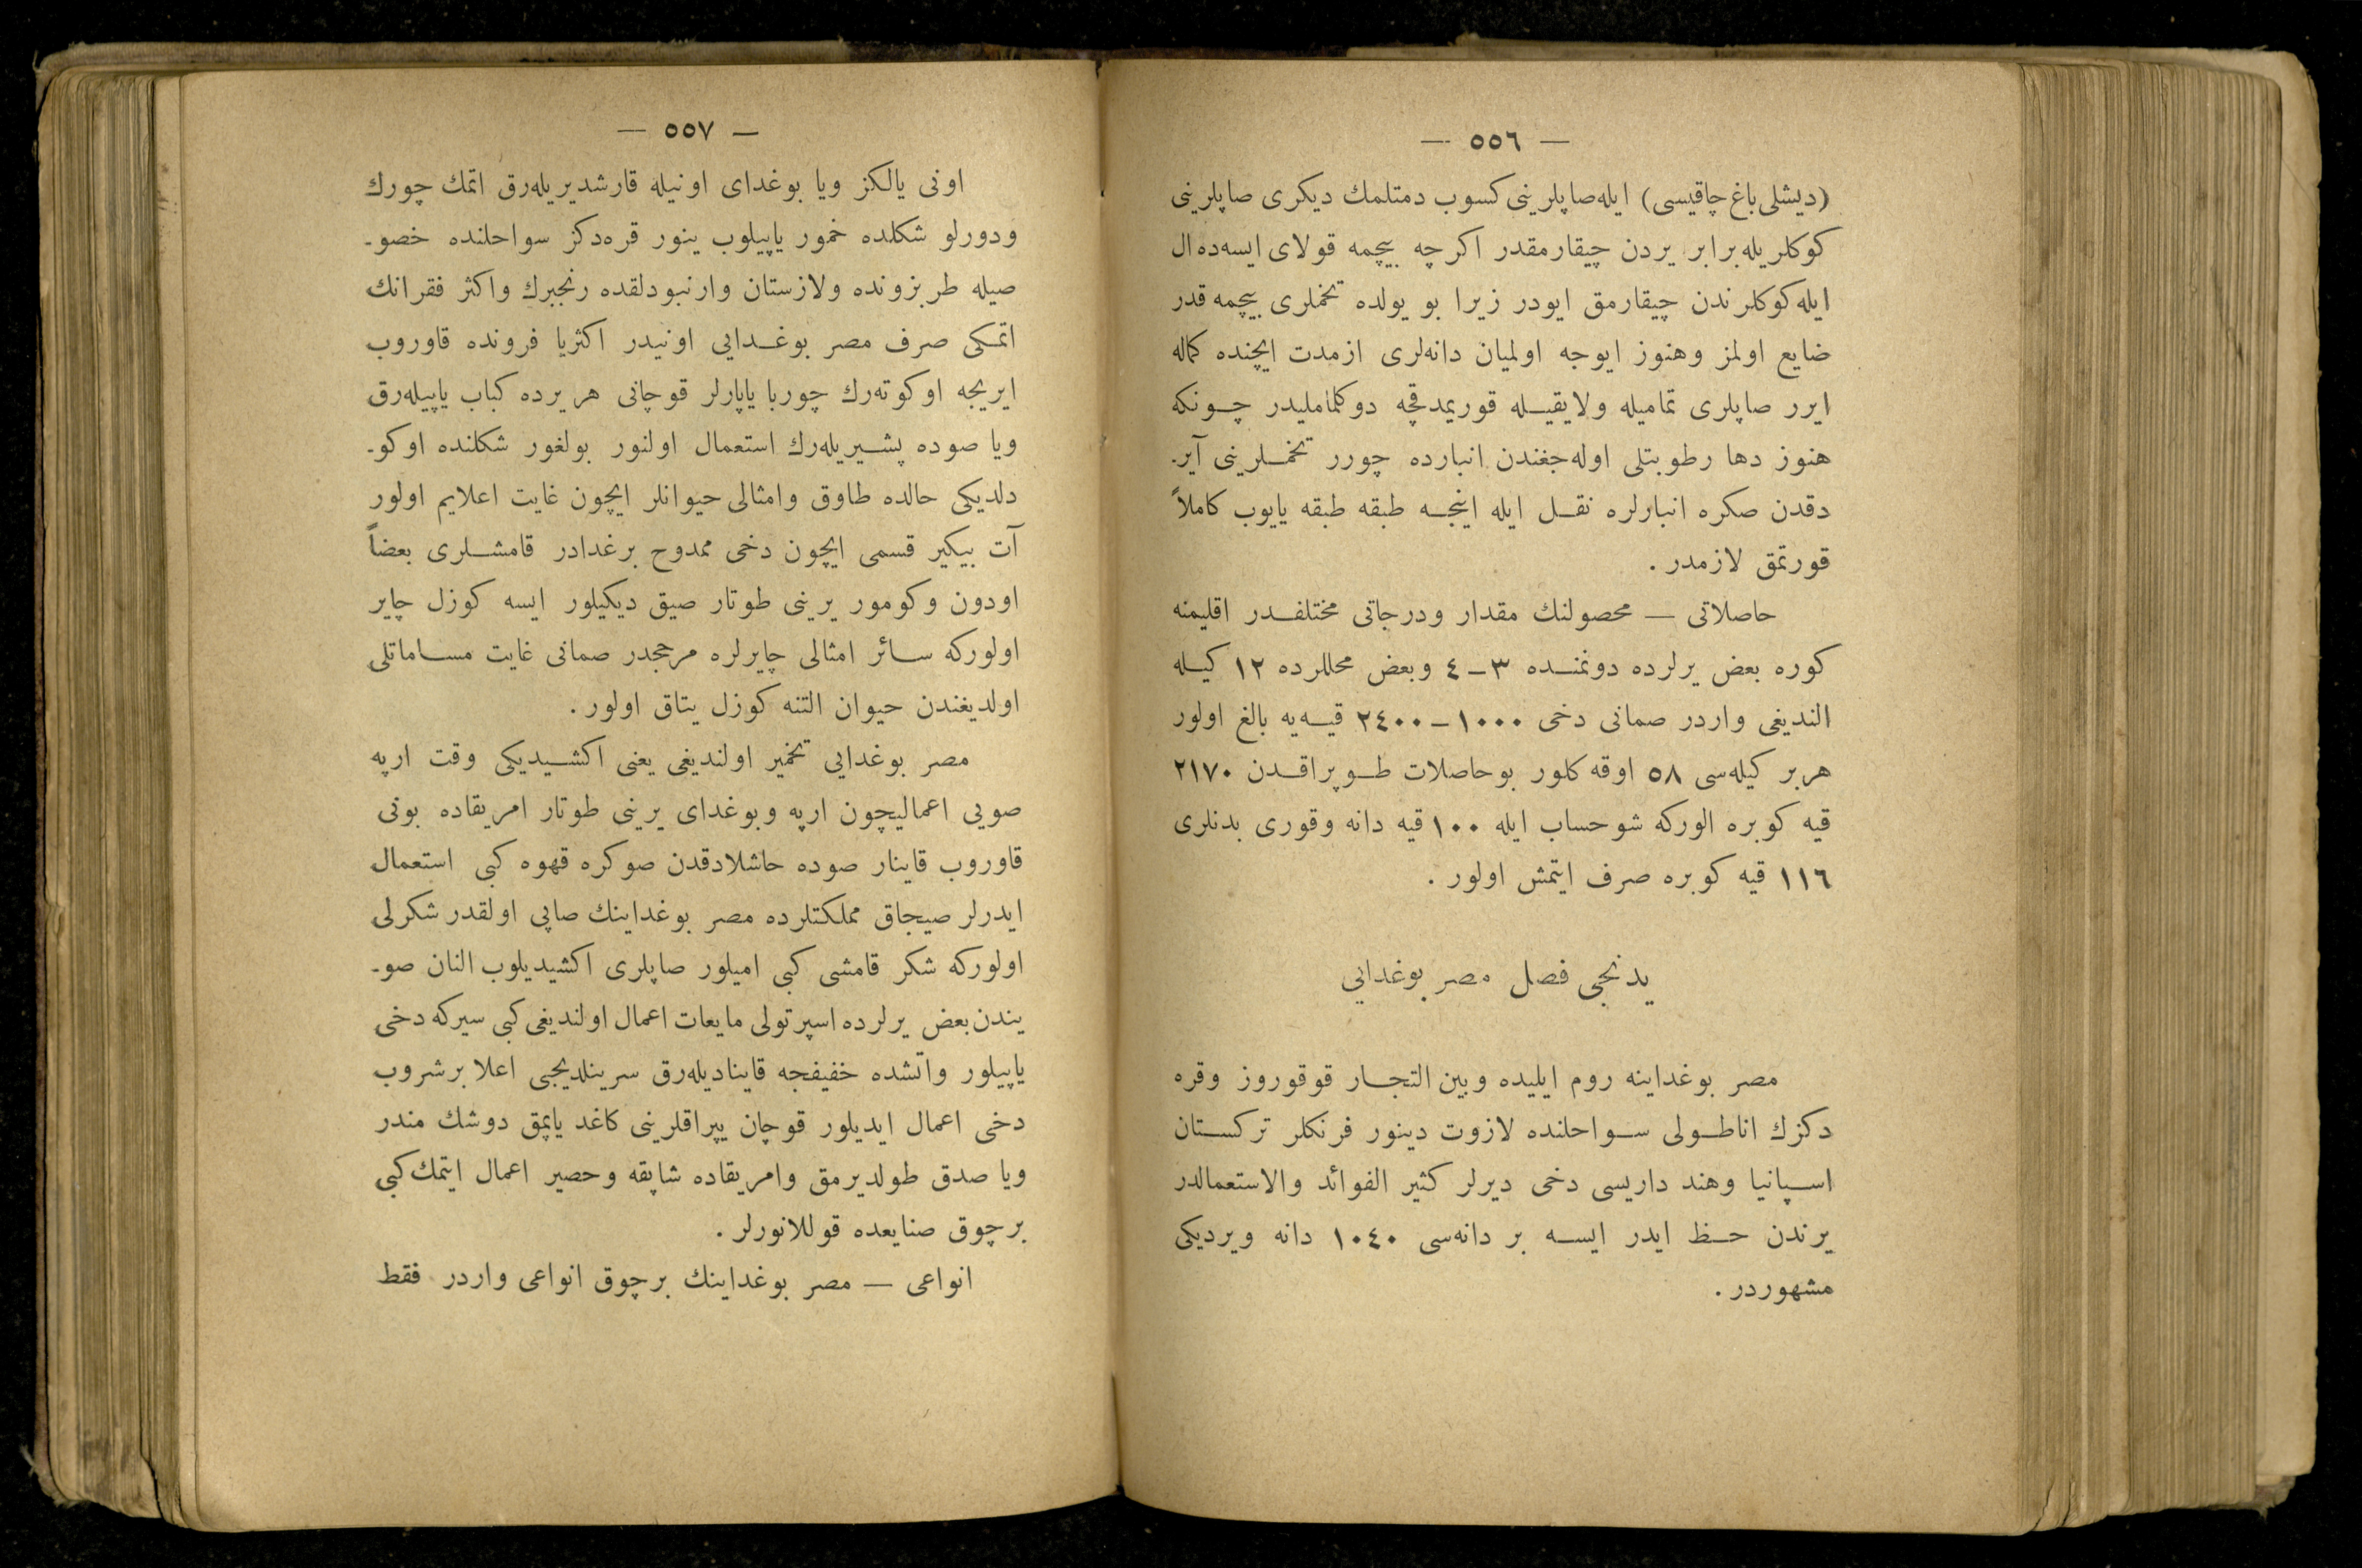 — ٥٥٦ —
(دیشلی باغ چاقیسی) ایله صاپلرینی کسوب دمتلمك دیکری صاپلرینی
کوکلریله برابر یردن چیقارمقدر اکرچه بیچمه قولای ایسه‌ده ال
ایله کوکلرندن چیقارمق ایودر زیرا بو یولده تخملری بیچمه قدر
ضایع اولمز وهنوز ایوجه اولمیان دانه‌لری ازمدت ایچنده کماله
ایرر صاپلری تمامیله ولایقیله قوریمدقچه دوکلماملیدر چونکه
هنوز دها رطوبتلی اوله‌جغندن انبارده چورر تخملرینی آیر-
دقدن صکره انبارلره نقل ایله اینجه طبقه طبقه یایوب کاملاً
قورتمق لازمدر .
حاصلاتی — محصولنك مقدار ودرجاتی مختلفدر اقلیمنه
کوره بعض یرلرده دونمنده ٣-٤ وبعض محللرده ١٢ کیله
الندیغی واردر صمانی دخی ١٠٠٠-٢٤٠٠ قیه‌یه بالغ اولور
هربر کیله‌سی ٥٨ اوقه کلور بوحاصلات طوپراقدن ٢١٧٠
قیه کوبره الورکه شوحساب ایله ١٠٠ قیه دانه وقوری بدنلری
١١٦ قیه کوبره صرف ایتمش اولور .
یدنجی فصل مصر بوغدایی
مصر بوغداینه روم ایلیده وبین التجار قوقوروز وقره
دکزك اناطولی سواحلنده لازوت دینور فرنکلر ترکستان
اسپانیا وهند داریسی دخی دیرلر کثیر الفوائد والاستعمالدر
یرندن حظ ایدر ایسه بر دانه‌سی ١٠٤٠ دانه ویردیکی
مشهوردر .
— ٥٥٧ —
اونی یالکز ویا بوغدای اونیله قارشدیریله‌رق اتمك چورك
ودورلو شکلده خمور یاپیلوب ینور قره‌دکز سواحلنده خصو-
صیله طربزونده ولازستان وارنبودلقده رنجبرك واکثر فقرانك
اتمکی صرف مصر بوغدایی اونیدر اکثریا فرونده قاوروب
ایریجه اوکوته‌رك چوربا یاپارلر قوچانی هر یرده کباب یاپیله‌رق
ویا صوده پشیریله‌رك استعمال اولنور بولغور شکلنده اوکو-
دلدیکی حالده طاوق وامثالی حیوانلر ایچون غایت اعلایم اولور
آت بیکیر قسمی ایچون دخی ممدوح برغدادر قامشلری بعضاً
اودون وکومور یرینی طوتار صیق دیکیلور ایسه کوزل چایر
اولورکه سائر امثالی چایرلره مرجحدر صمانی غایت مساماتلی
اولدیغندن حیوان التنه کوزل یتاق اولور .
مصر بوغدایی تخمیر اولندیغی یعنی اکشیدیکی وقت ارپه
صویی اعمالیچون ارپه وبوغدای یرینی طوتار امریقاده بونی
قاوروب قاینار صوده حاشلادقدن صوکره قهوه کبی استعمال
ایدرلر صیجاق مملکتلرده مصر بوغداینك صاپی اولقدر شکرلی
اولورکه شکر قامشی کبی امیلور صاپلری اکشیدیلوب النان صو-
یندن بعض یرلرده اسپرتولی مایعات اعمال اولندیغی کبی سیرکه دخی
یاپیلور واتشده خفیفجه قاینادیله‌رق سرینلدیجی اعلا برشروب
دخی اعمال ایدیلور قوچان یپراقلرینی کاغد یاپمق دوشك مندر
ویا صدق طولدیرمق وامریقاده شاپقه وحصیر اعمال ایتمك کبی
برچوق صنایعده قوللانورلر .
انواعی — مصر بوغداینك برچوق انواعی واردر فقط